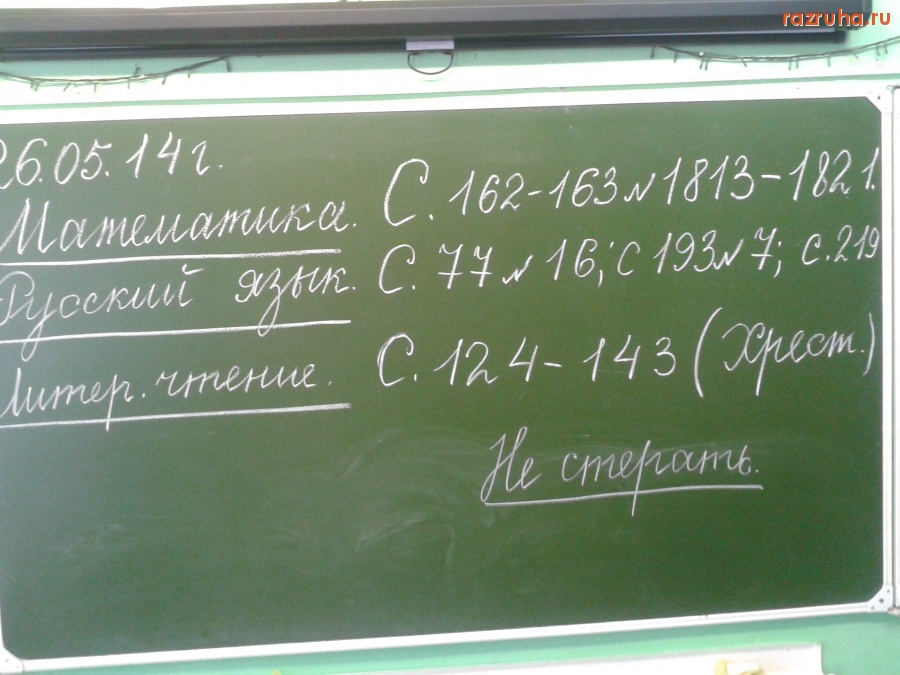 razruha.ru
26.05.14г.
Математика. С. 162-163 № 1813-1821.
Русский язык. С. 77 № 16; с 193 № 7; с. 219
Литер. чтение. С. 124-143 (Хрест.)
Не стерать.